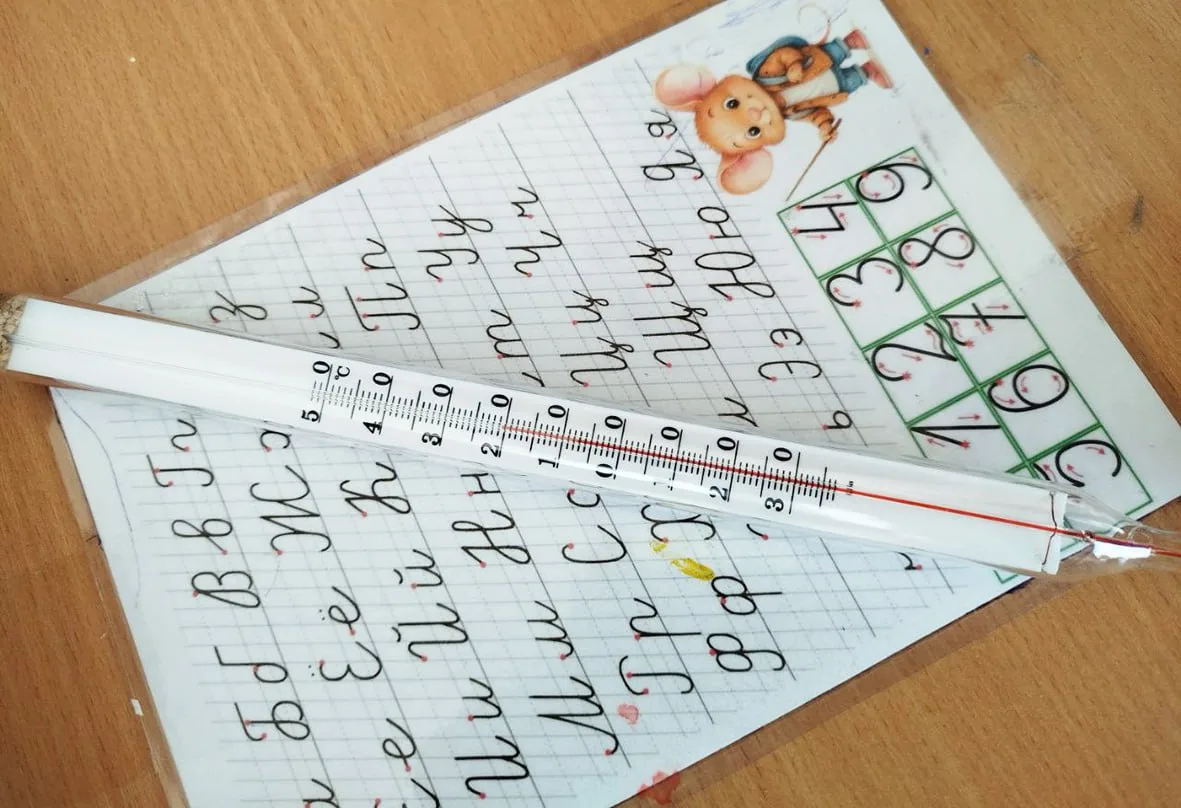 Бб Вв Гг
е Ёё Жж з
Ии Йй Кк л
Мм Нн Пп
Рр Сс т Уу
Фф Х Цц Чч
Щщ
ь Ээ Юю Яя
1 2 3 4
6 7 8 9
°C
50 40 30 20 10 0 10 20 30